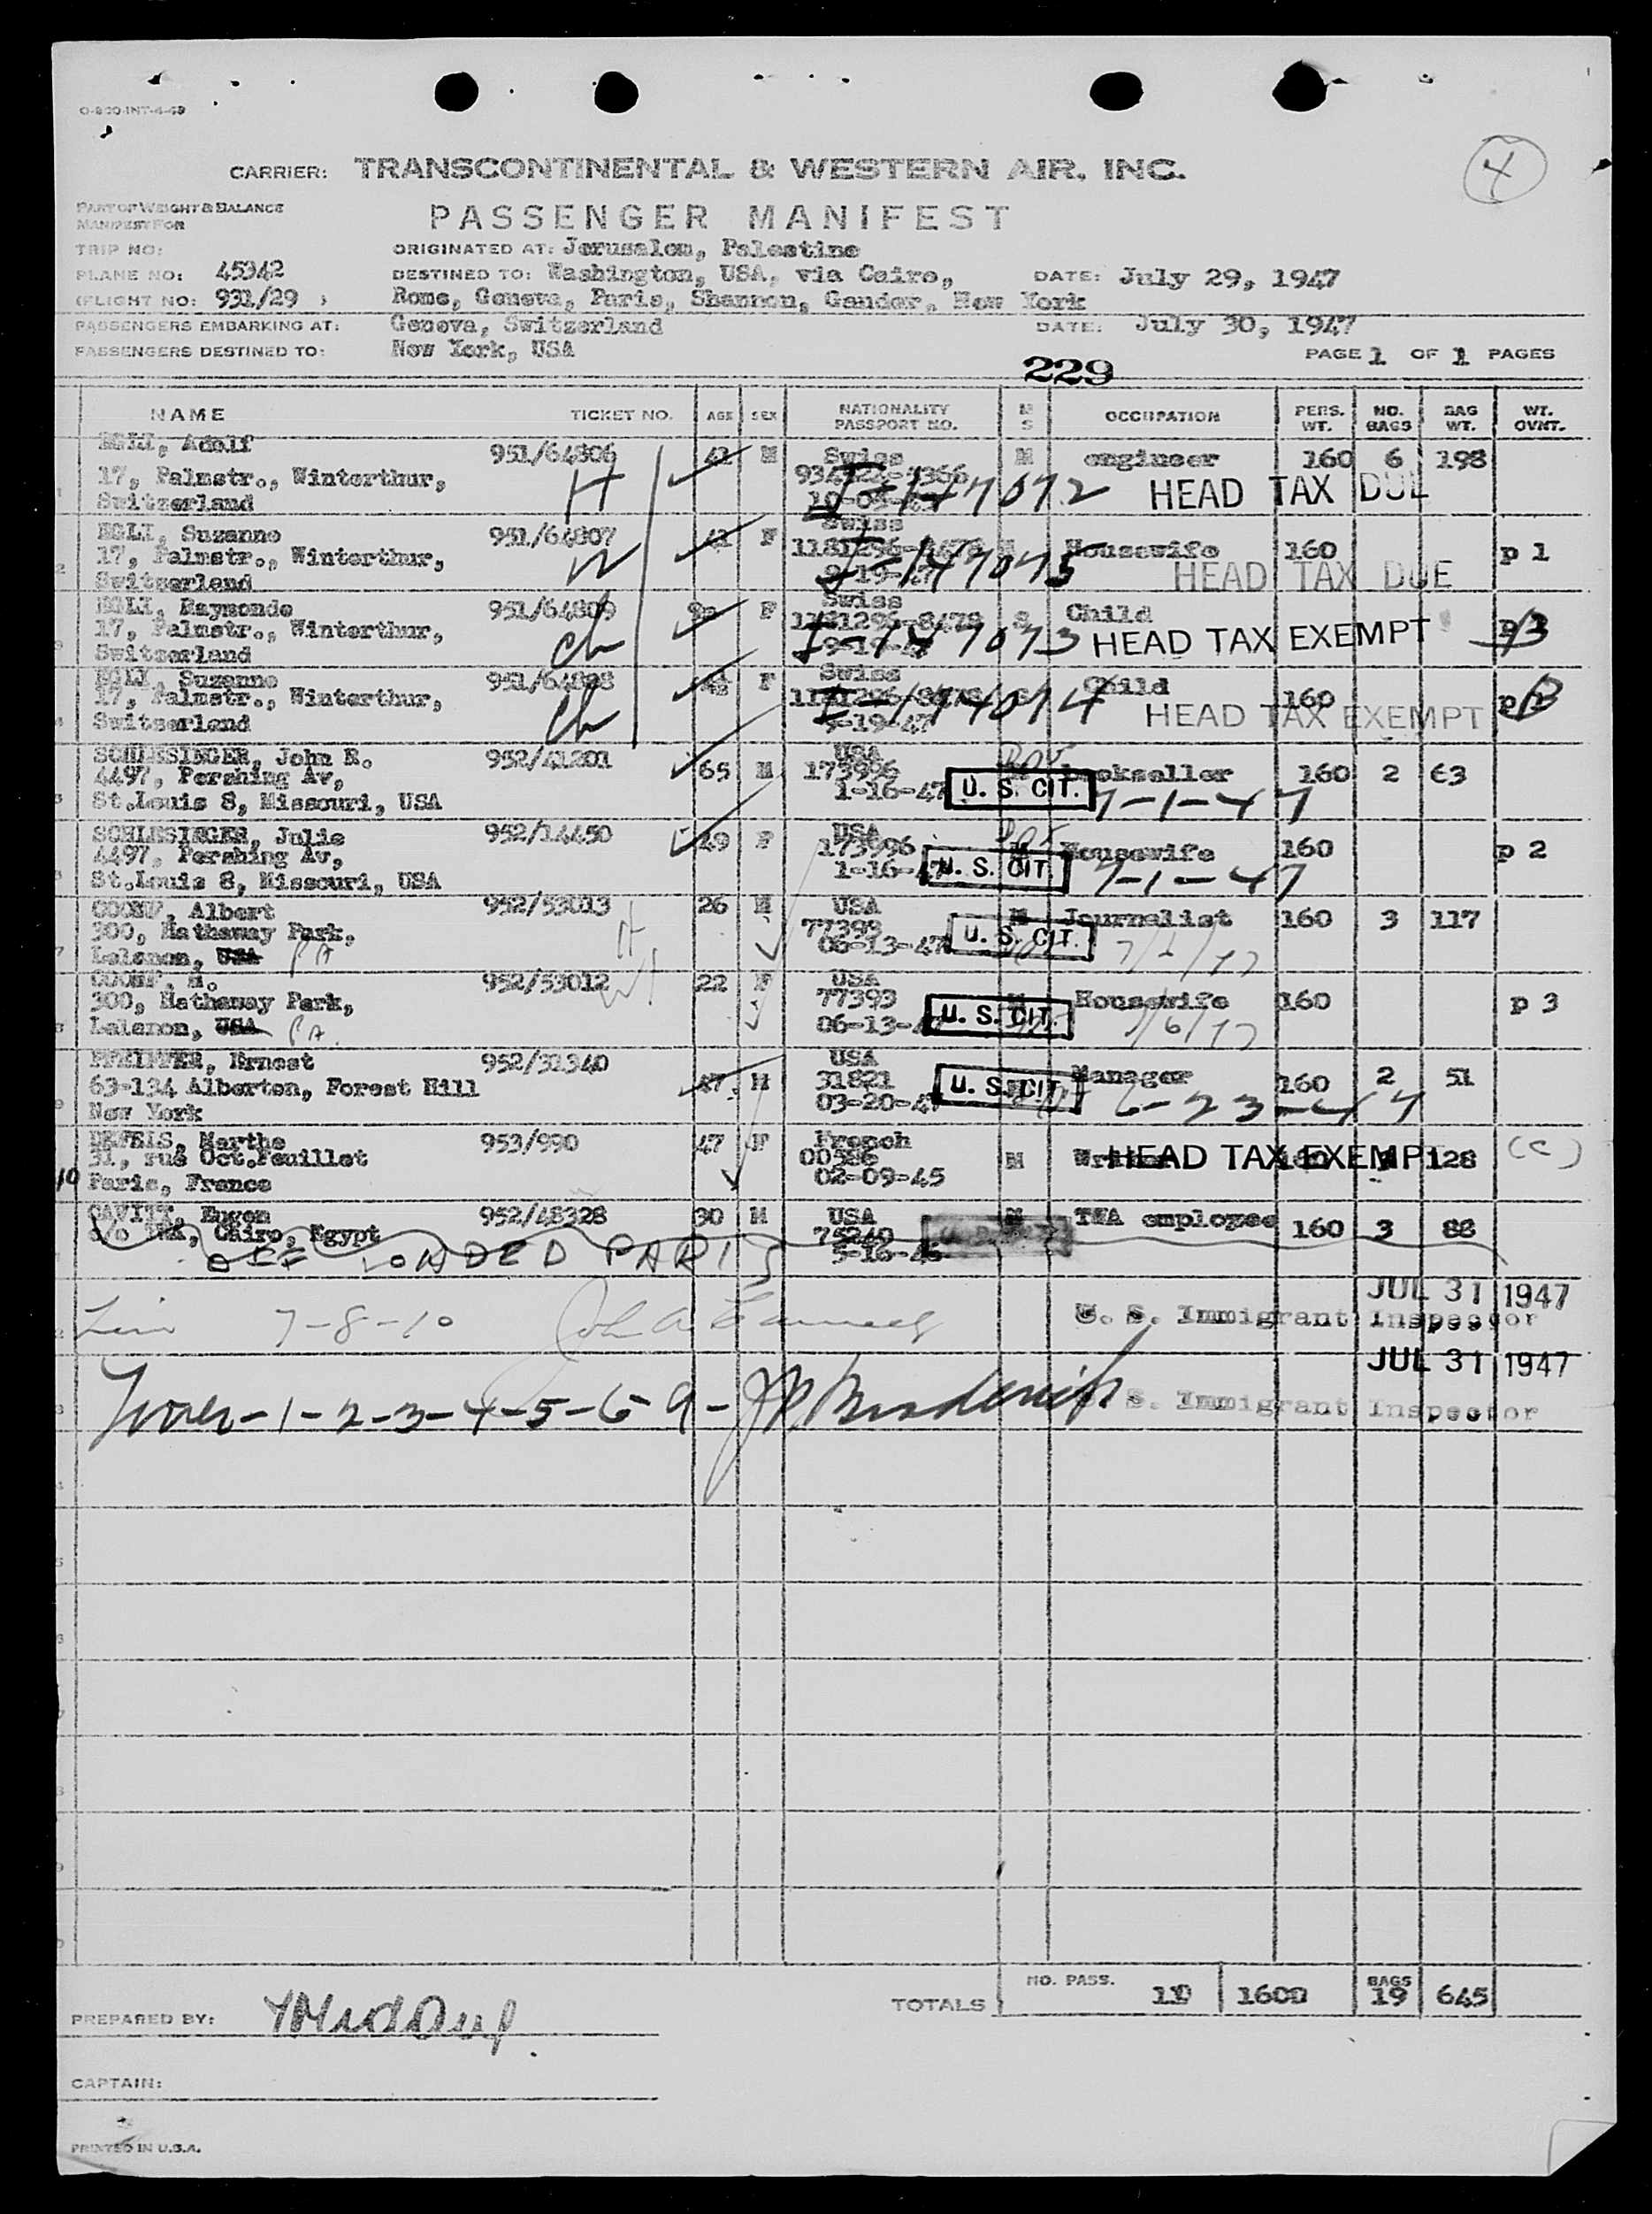 O-800-INT-4-49
4
CARRIER: TRANSCONTINENTAL & WESTERN AIR, INC.
PART OF WEIGHT & BALANCE
MANIFEST FOR
PASSENGER MANIFEST
TRIP NO:
ORIGINATED AT: Jerusalem, Palestine
PLANE NO: 45342
DESTINED TO: Washington, USA, via Cairo, DATE: July 29, 1947
(FLIGHT NO: 931/29 ) Rome, Geneva, Paris, Shannon, Gander, New York
PASSENGERS EMBARKING AT: Geneva, Switzerland DATE: July 30, 1947
PASSENGERS DESTINED TO: New York, USA
PAGE 1 OF 1 PAGES
229
NAME TICKET NO. AGE SEX NATIONALITY PASSPORT NO. M S OCCUPATION PERS. WT. NO. BAGS BAG WT. WT. OVNT.
EGLI, Adolf 951/64806 M Swiss M engineer 160 6 198
17, Palmstr., Winterthur, H I-147072 HEAD TAX DUE
Switzerland
EGLI, Suzanne 951/64807 F Swiss
17, Palmstr., Winterthur, W Housewife 160 p 1
Switzerland I-147075 HEAD TAX DUE
EGLI, Raymonde 951/64809 F Swiss S Child
17, Palmstr., Winterthur, ch I-147073 HEAD TAX EXEMPT
Switzerland
EGLI, Suzanne 951/64808 F Swiss Child
17, Palmstr., Winterthur, ch I-147074 160
Switzerland 9-19-47 HEAD TAX EXEMPT
SCHLESINGER, John R. 952/41201 65 M USA
4497, Pershing Av, 173996 bookseller 160 2 63
St.Louis 8, Missouri, USA 1-16-47 U. S. CIT. 7-1-47
SCHLESINGER, Julie 952/14450 49 F USA
4497, Pershing Av, 173996 Housewife 160 p 2
St.Louis 8, Missouri, USA 1-16-47 U. S. CIT. 7-1-47
Albert 952/53013 26 M USA M Journalist 160 3 117
300, Hathaway Park, 77393 U. S. CIT.
Lebanon, USA PA 06-13-47
952/53012 22 F USA
300, Hathaway Park, 77393 M Housewife 160 p 3
Lebanon, USA PA. 06-13-47 U. S. CIT.
PFEIFFER, Ernest 952/31340 47 M USA Manager
63-134 Alberton, Forest Hill 31821 U. S. CIT. 160 2 51
New York 03-20-47 6-23-47
Marthe 953/990 47 F French
31, rue Oct.Feuillet 00586 M HEAD TAX EXEMPT 128 (C)
10 Paris, France 02-09-45
CAVITT, Eugen 952/48328 30 M USA M TWA employee 160 3 88
c/o TWA, Cairo, Egypt 75240
OFF LOADED PARIS 5-16-46
JUL 31 1947
7-8-10 U. S. Immigrant Inspector
JUL 31 1947
1-2-3-4-5-6-9- U. S. Immigrant Inspector
TOTALS NO. PASS. 10 1600 BAGS 19 645
PREPARED BY:
CAPTAIN:
PRINTED IN U.S.A.